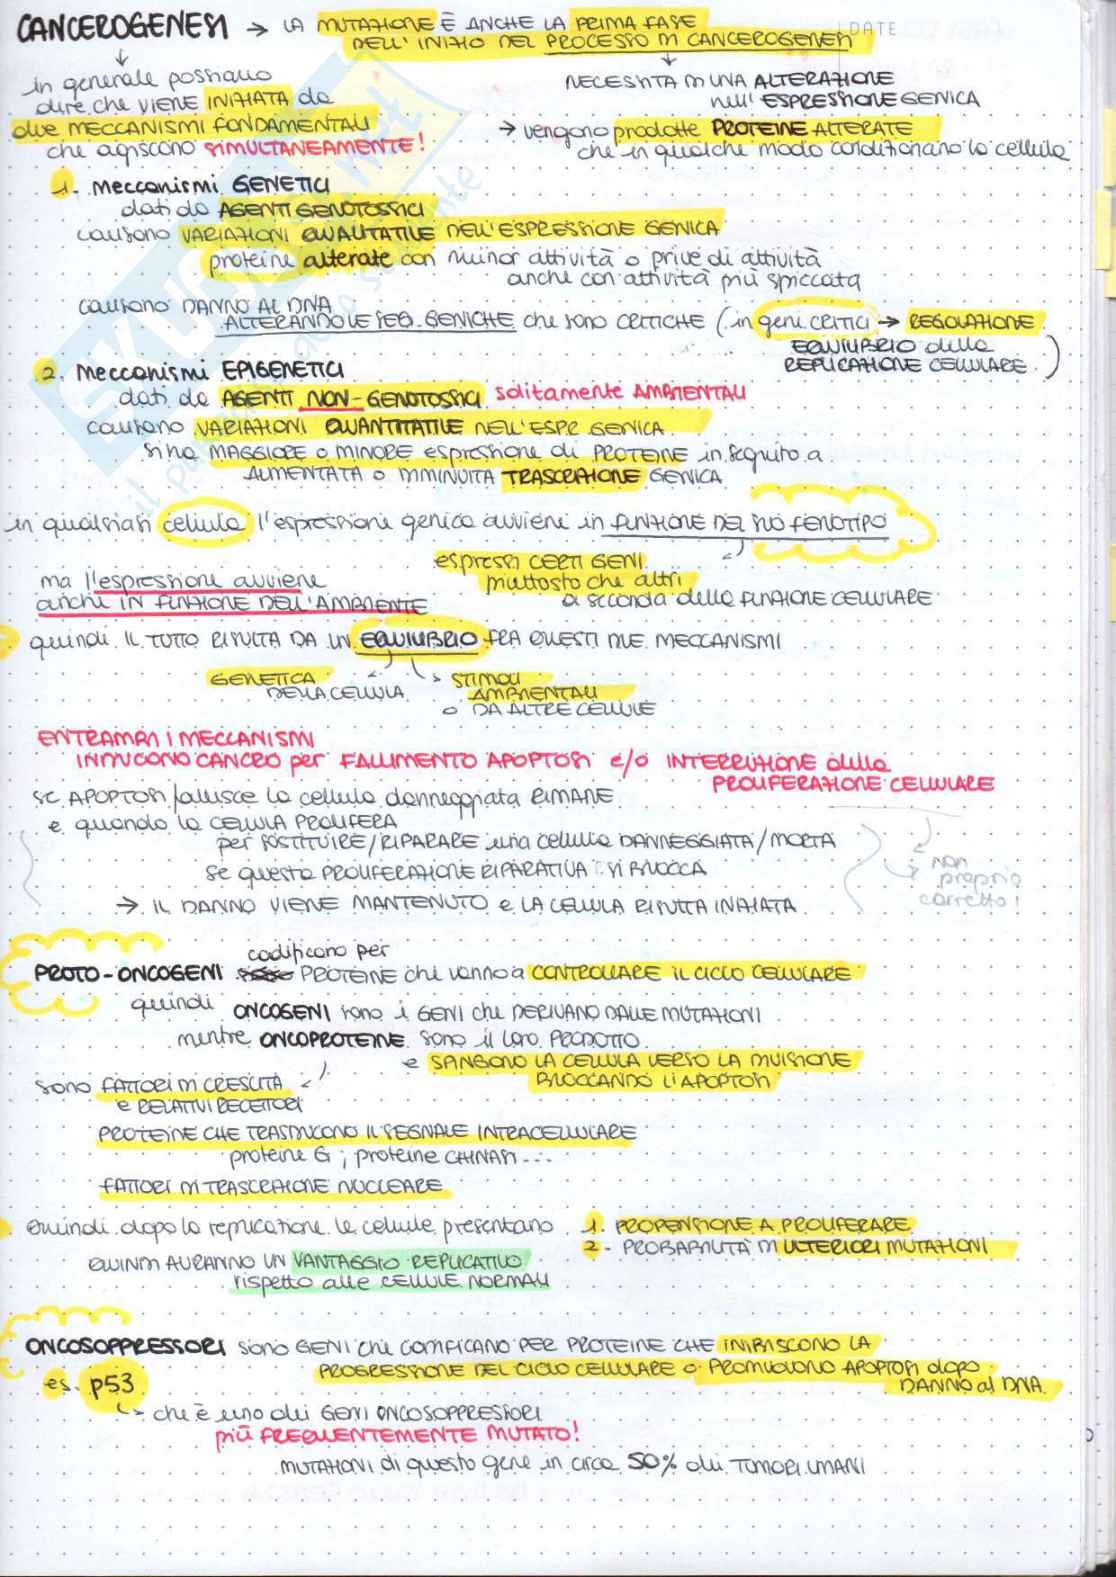 CANCEROGENESI → LA MUTAZIONE È ANCHE LA PRIMA FASE
DATE
DELL'INIZIO DEL PROCESSO DI CANCEROGENESI
in generale possiamo
dire che VIENE INIZIATA da
due MECCANISMI FONDAMENTALI
che agiscono SIMULTANEAMENTE!
NECESSITA DI UNA ALTERAZIONE
nell'ESPRESSIONE GENICA
→ vengono prodotte PROTEINE ALTERATE
che in qualche modo condizionano la cellula
1. Meccanismi GENETICI
dati da AGENTI GENOTOSSICI
causano VARIAZIONI QUALITATIVE NELL'ESPRESSIONE GENICA
proteine alterate con minor attività o prive di attività
anche con attività più spiccata
causano DANNO AL DNA
ALTERANDO LE SEQ. GENICHE che sono CRITICHE (in geni CRITICI → REGOLAZIONE
EQUILIBRIO della
REPLICAZIONE CELLULARE)
2. Meccanismi EPIGENETICI
dati da AGENTI NON-GENOTOSSICI solitamente AMBIENTALI
causano VARIAZIONI QUANTITATIVE NELL'ESPR. GENICA
si ha MAGGIORE o MINORE espressione di PROTEINE in seguito a
AUMENTATA o DIMINUITA TRASCRIZIONE GENICA
in qualsiasi cellula l'espressione genica avviene in FUNZIONE DEL SUO FENOTIPO
espressi CERTI GENI
piuttosto che altri
a seconda della FUNZIONE CELLULARE
ma l'espressione avviene
anche IN FUNZIONE DELL'AMBIENTE
quindi IL TUTTO RISULTA DA UN EQUILIBRIO FRA QUESTI DUE MECCANISMI
GENETICA
DELLA CELLULA
STIMOLI
AMBIENTALI
o DA ALTRE CELLULE
ENTRAMBI I MECCANISMI
INDUCONO CANCRO per FALLIMENTO APOPTOSI e/o INTERRUZIONE della
PROLIFERAZIONE CELLULARE
se APOPTOSI fallisce la cellula danneggiata RIMANE
e quando la CELLULA PROLIFERA
per SOSTITUIRE/RIPARARE una cellula DANNEGGIATA/MORTA
se questa PROLIFERAZIONE RIPARATIVA SI BLOCCA
→ IL DANNO VIENE MANTENUTO e LA CELLULA RISULTA INIZIATA
non
proprio
corretto!
PROTO-ONCOGENI codificano per PROTEINE che vanno a CONTROLLARE IL CICLO CELLULARE
quindi ONCOGENI sono i GENI che DERIVANO DALLE MUTAZIONI
mentre ONCOPROTEINE sono il loro PRODOTTO
e SPINGONO LA CELLULA VERSO LA DIVISIONE
BLOCCANDO L'APOPTOSI
sono FATTORI DI CRESCITA
e RELATIVI RECETTORI
PROTEINE CHE TRASDUCONO IL SEGNALE INTRACELLULARE
proteine G ; proteine CHINASI...
FATTORI DI TRASCRIZIONE NUCLEARE
Quindi dopo la replicazione le cellule presentano 1. PROPENSIONE A PROLIFERARE
2- PROBABILITÀ DI ULTERIORI MUTAZIONI
QUINDI AVRANNO UN VANTAGGIO REPLICATIVO
rispetto alle CELLULE NORMALI
ONCOSOPPRESSORI sono GENI che CODIFICANO PER PROTEINE CHE INIBISCONO LA
PROGRESSIONE DEL CICLO CELLULARE o PROMUOVONO APOPTOSI dopo
DANNO al DNA
es. p53
che è uno dei GENI ONCOSOPPRESSORI
più FREQUENTEMENTE MUTATO!
MUTAZIONI di questo gene in circa 50% dei TUMORI UMANI